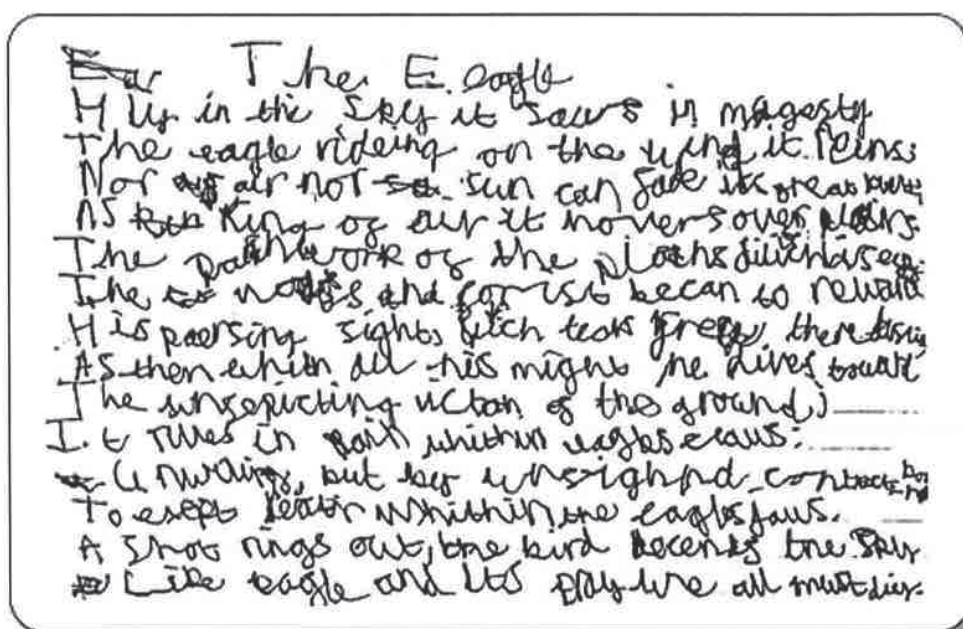 The Eeagle
H up in the sky it sours in magesty
The eagle rideing on the wind it reins:
Nor air nor sun can fade its great
As King of air it hovers over plains.
The patchwork of the
The and becan to reward
His paersing sight, teas there
As then whith all his might he dives toward
The unsepicting victom of the ground;
It rives in pain whithin eagles claws:
Unwilling, but by unsighnd contract bound
To exept death whithin the eagles jaws.
A shot rings out, the bird decends the sky
Like eagle and its pray we all must die.